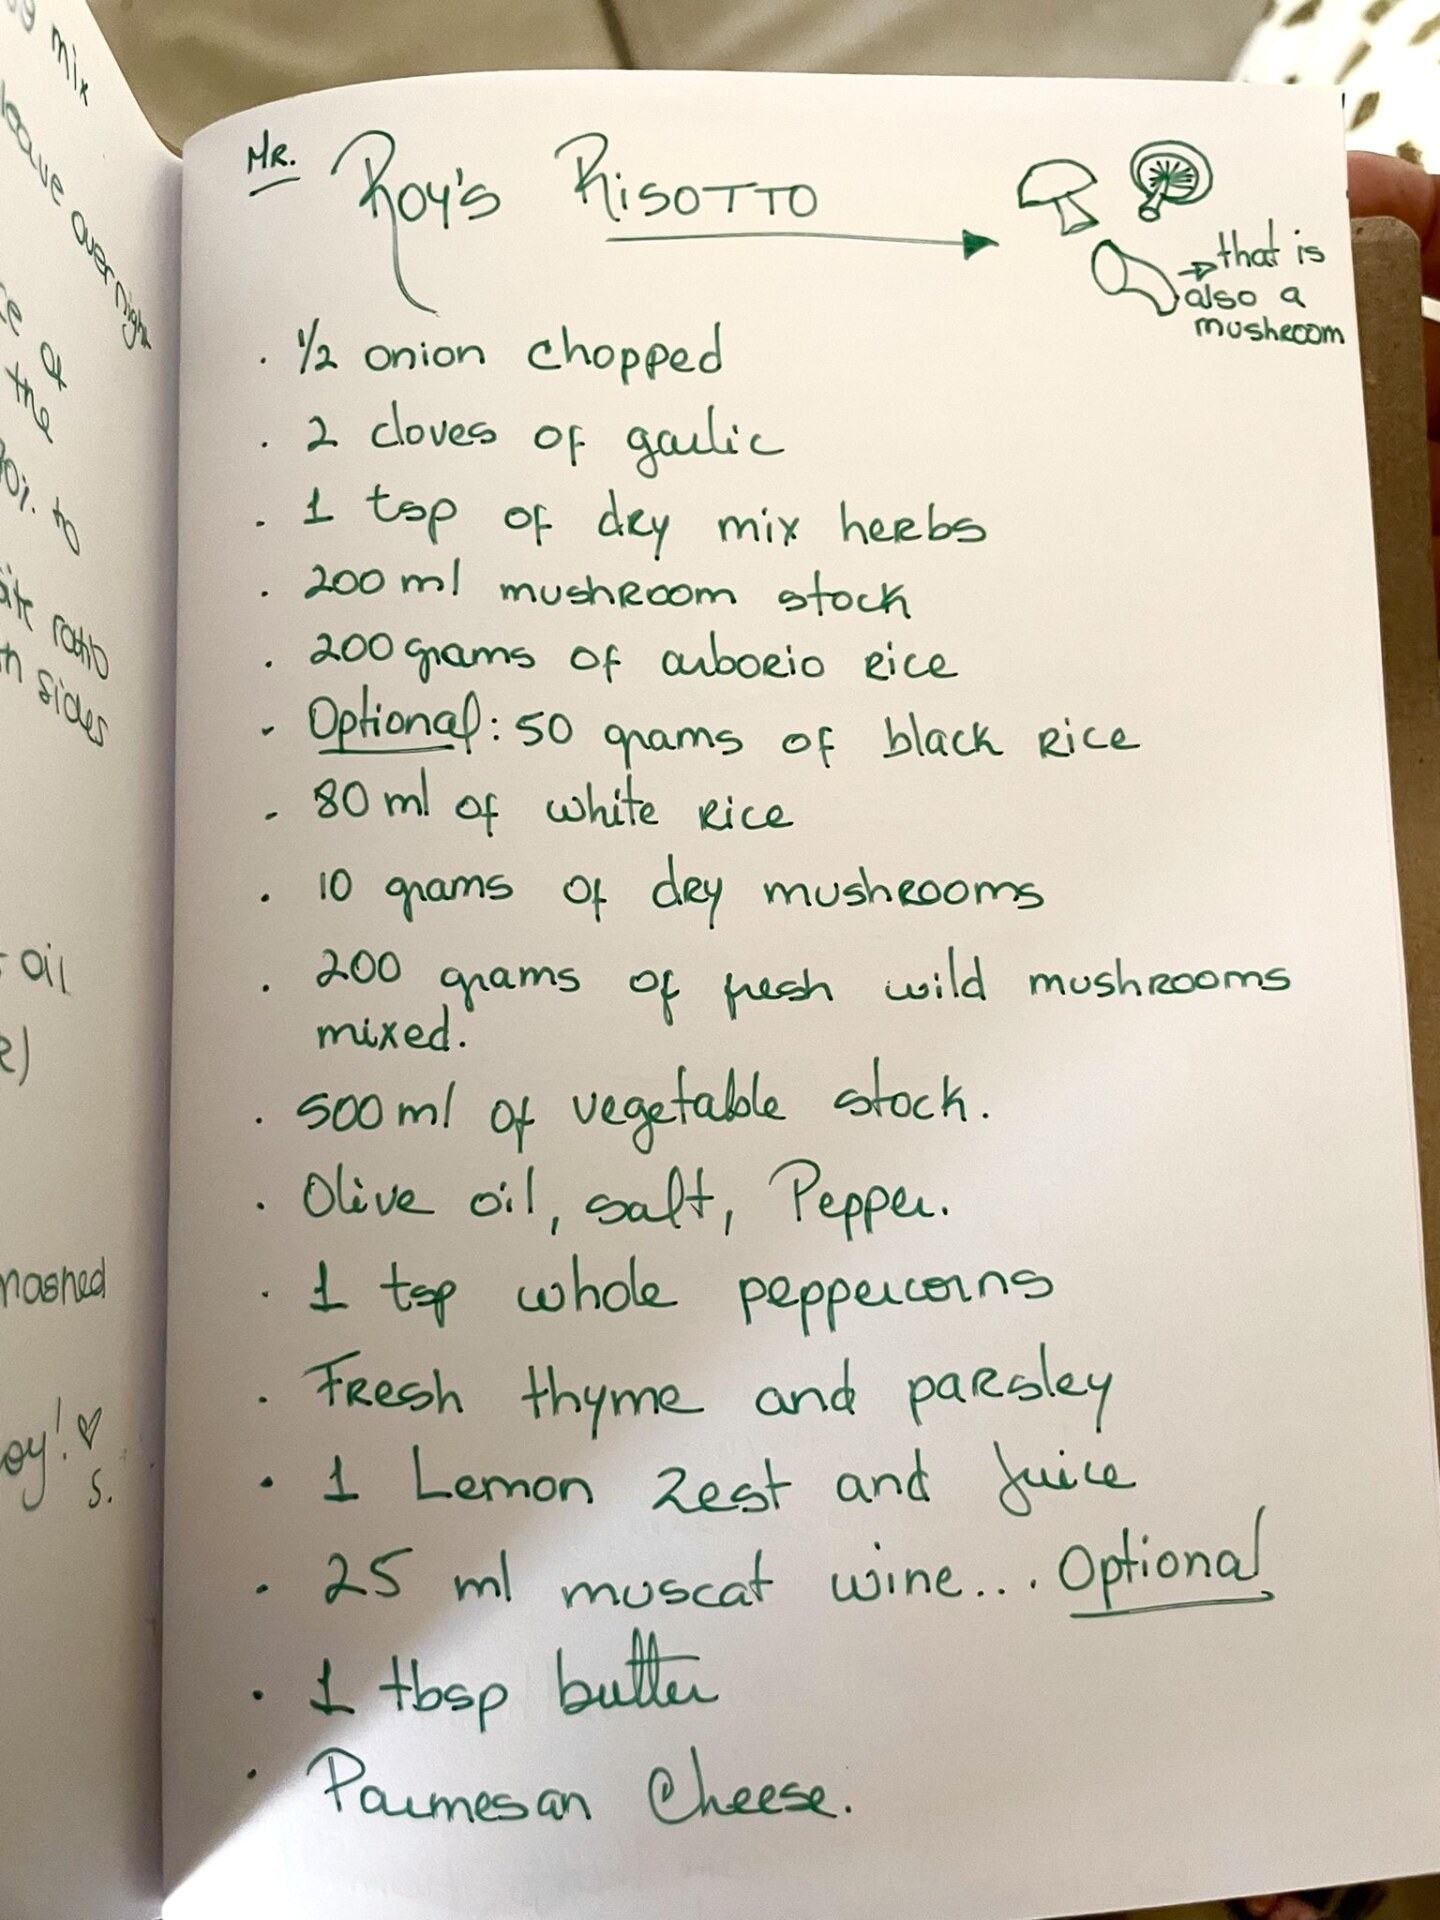 mix
leave overnight
the
to
ratio
sides
oil
mashed
S.
MR. Roy's Risotto
that is
also a
mushroom
. 1/2 onion chopped
. 2 cloves of garlic
. 1 tsp of dry mix herbs
. 200 ml mushroom stock
. 200 grams of arborio rice
- Optional: 50 grams of black rice
- 80 ml of white rice
. 10 grams of dry mushrooms
. 200 grams of fresh wild mushrooms
mixed.
. 500 ml of vegetable stock.
. Olive oil, salt, Pepper.
. 1 tsp whole peppercorns
. Fresh thyme and parsley
. 1 Lemon zest and juice
. 25 ml muscat wine... Optional
. 1 tbsp butter
. Parmesan Cheese.